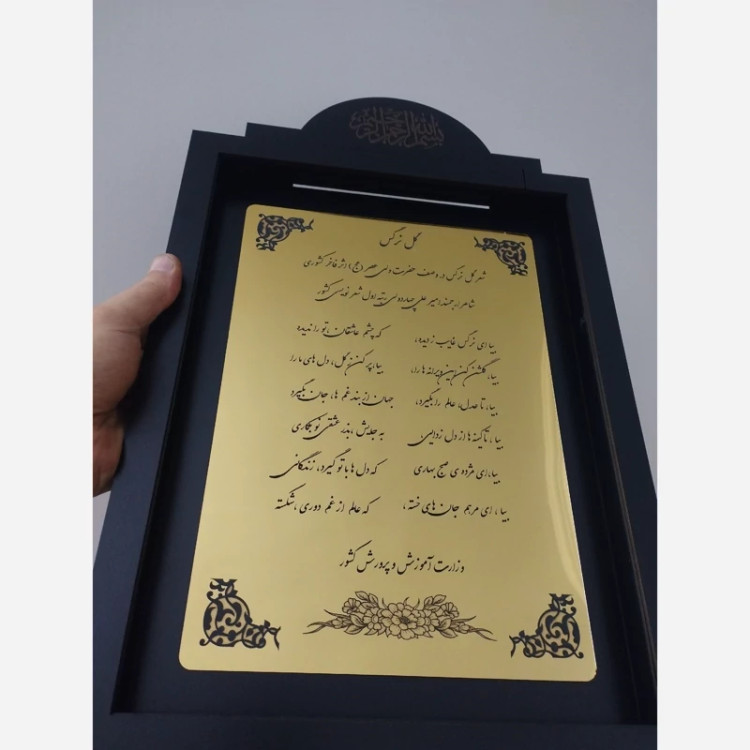 بسم الله الرحمن الرحیم
گل نرگس
شعر گل نرگس در وصف حضرت ولی عصر (عج) اثر فاخر کشوری
شاعر ارجمند امیر علی رتبه اول شعر نویسی کشور
بیا ای نرگس غایب ز دیده، که چشم عاشقان، تو را ندیده
بیا، گلشن کن این ویرانه ها را، بیا، پر کن ز گل، دل های ما را
بیا، تا عدل، عالم را بگیرد، جهان از بند غم ها، جان بگیرد
بیا، تا کینه ها از دل زدایی، به جایش، بذر عشقی نو بکاری
بیا، ای مژده ی صبح بهاری که دل ها با تو گیرد، زندگانی
بیا، ای مرهم جان های خسته، که عالم از غم دوری، شکسته
وزارت آموزش و پرورش کشور